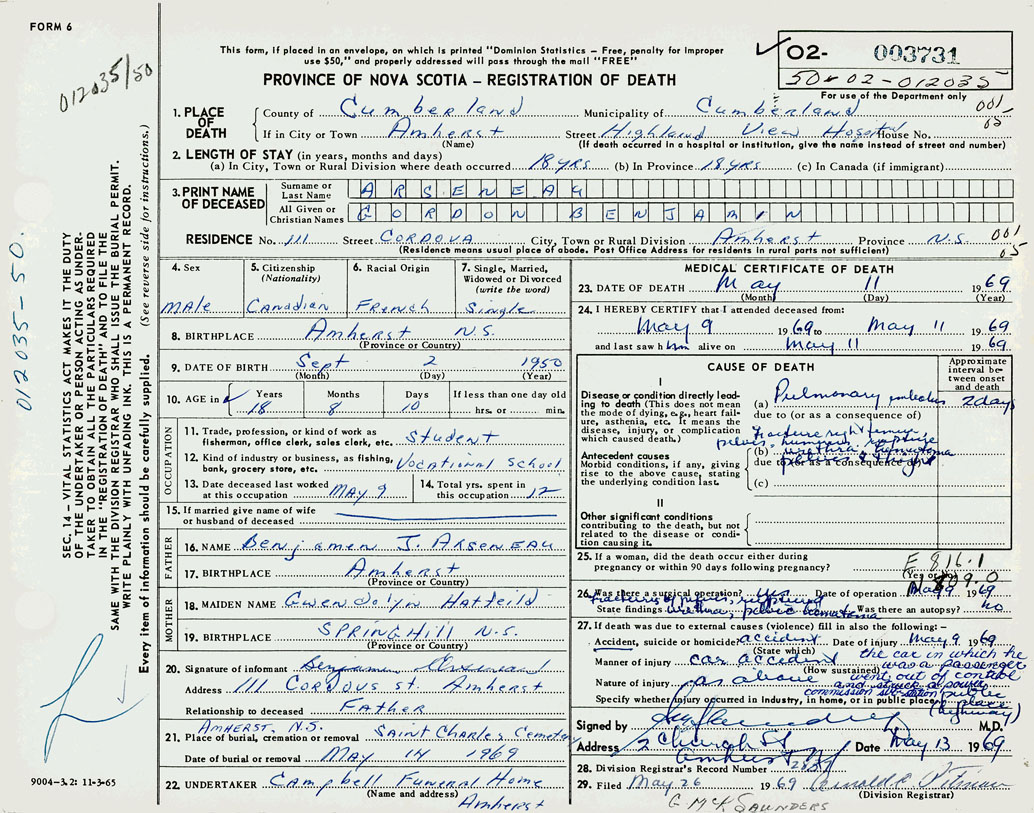 FORM 6
012035/50
This form, if placed in an envelope, on which is printed "Dominion Statistics – Free, penalty for improper
use $50," and properly addressed will pass through the mail "FREE"
PROVINCE OF NOVA SCOTIA – REGISTRATION OF DEATH
✓ 02- 003731
50-02-012035
For use of the Department only
001
05
1. PLACE OF DEATH
County of Cumberland Municipality of Cumberland
If in City or Town Amherst Street Highland View Hospital House No.
(Name) (If death occurred in a hospital or institution, give the name instead of street and number)
2. LENGTH OF STAY (in years, months and days)
(a) In City, Town or Rural Division where death occurred 18 yrs (b) In Province 18 yrs (c) In Canada (if immigrant)
3. PRINT NAME OF DECEASED
Surname or Last Name ARSENEAU
All Given or Christian Names GORDON BENJAMIN
RESIDENCE No. 111 Street CORDOVA City, Town or Rural Division Amherst Province N.S. 001
05
(Residence means usual place of abode. Post Office Address for residents in rural parts not sufficient)
4. Sex
Male
5. Citizenship (Nationality)
Canadian
6. Racial Origin
French
7. Single, Married, Widowed or Divorced (write the word)
Single
8. BIRTHPLACE Amherst N.S.
(Province or Country)
9. DATE OF BIRTH Sept 2 1950
(Month) (Day) (Year)
10. AGE in Years Months Days If less than one day old
18 8 10 hrs. or min.
OCCUPATION
11. Trade, profession, or kind of work as
fisherman, office clerk, sales clerk, etc. Student
12. Kind of industry or business, as fishing,
bank, grocery store, etc. Vocational School
13. Date deceased last worked
at this occupation MAY 9
14. Total yrs. spent in
this occupation 12
15. If married give name of wife
or husband of deceased
FATHER
16. NAME Benjamen J. Arseneau
17. BIRTHPLACE Amherst
(Province or Country)
MOTHER
18. MAIDEN NAME Gwendolyn Hatfeild
19. BIRTHPLACE SPRINGHILL N.S.
(Province or Country)
20. Signature of informant Benjamin Arseneau
Address 111 CORDOUS St. Amherst
Relationship to deceased Father
AMHERST, N.S.
21. Place of burial, cremation or removal Saint Charles Cemetery
Date of burial or removal MAY 14 1969
22. UNDERTAKER Campbell Funeral Home
(Name and address) Amherst
MEDICAL CERTIFICATE OF DEATH
23. DATE OF DEATH May 11 1969
(Month) (Day) (Year)
24. I HEREBY CERTIFY that I attended deceased from:
May 9 1969 to May 11 1969
and last saw him alive on May 11 1969
CAUSE OF DEATH
Approximate interval between onset and death
I
Disease or condition directly leading to death (This does not mean the mode of dying, e.g., heart failure, asthenia, etc. It means the disease, injury, or complication which caused death.)
(a) Pulmonary embolus 2 days
due to (or as a consequence of)
Fracture right femur
pelvis, rupture
Antecedent causes
Morbid conditions, if any, giving rise to the above cause, stating the underlying condition last.
(b) urethra, hematoma
due to (or as a consequence of)
(c)
II
Other significant conditions
contributing to the death, but not related to the disease or condition causing it.
25. If a woman, did the death occur either during
pregnancy or within 90 days following pregnancy?
(Yes or No)
E 816.1
N 809.0
26. Was there a surgical operation? yes Date of operation May 9 1969
Fractures of pelvis, ruptured
State findings urethra, pelvic hematoma Was there an autopsy? no
27. If death was due to external causes (violence) fill in also the following: –
Accident, suicide or homicide? accident Date of injury May 9 1969
(State which)
Manner of injury car accident the car in which he
(How sustained) was a passenger
Nature of injury as above went out of control
and struck a power
commission sub-station
Specify whether injury occurred in Industry, in home, or in public place public place
(highway)
Signed by M.D.
Address 2 Church St Date May 13 1969
Amherst NS
28. Division Registrar's Record Number
29. Filed May 26 1969
(Division Registrar)
G McK SAUNDERS
SEC. 14 – VITAL STATISTICS ACT MAKES IT THE DUTY
OF THE UNDERTAKER OR PERSON ACTING AS UNDER-
TAKER TO OBTAIN ALL THE PARTICULARS REQUIRED
IN THE "REGISTRATION OF DEATH" AND TO FILE THE
SAME WITH THE DIVISION REGISTRAR WHO SHALL ISSUE THE BURIAL PERMIT.
WRITE PLAINLY WITH UNFADING INK. THIS IS A PERMANENT RECORD.
Every item of information should be carefully supplied. (See reverse side for instructions.)
012035-50.
9004–3.2: 11-3-65